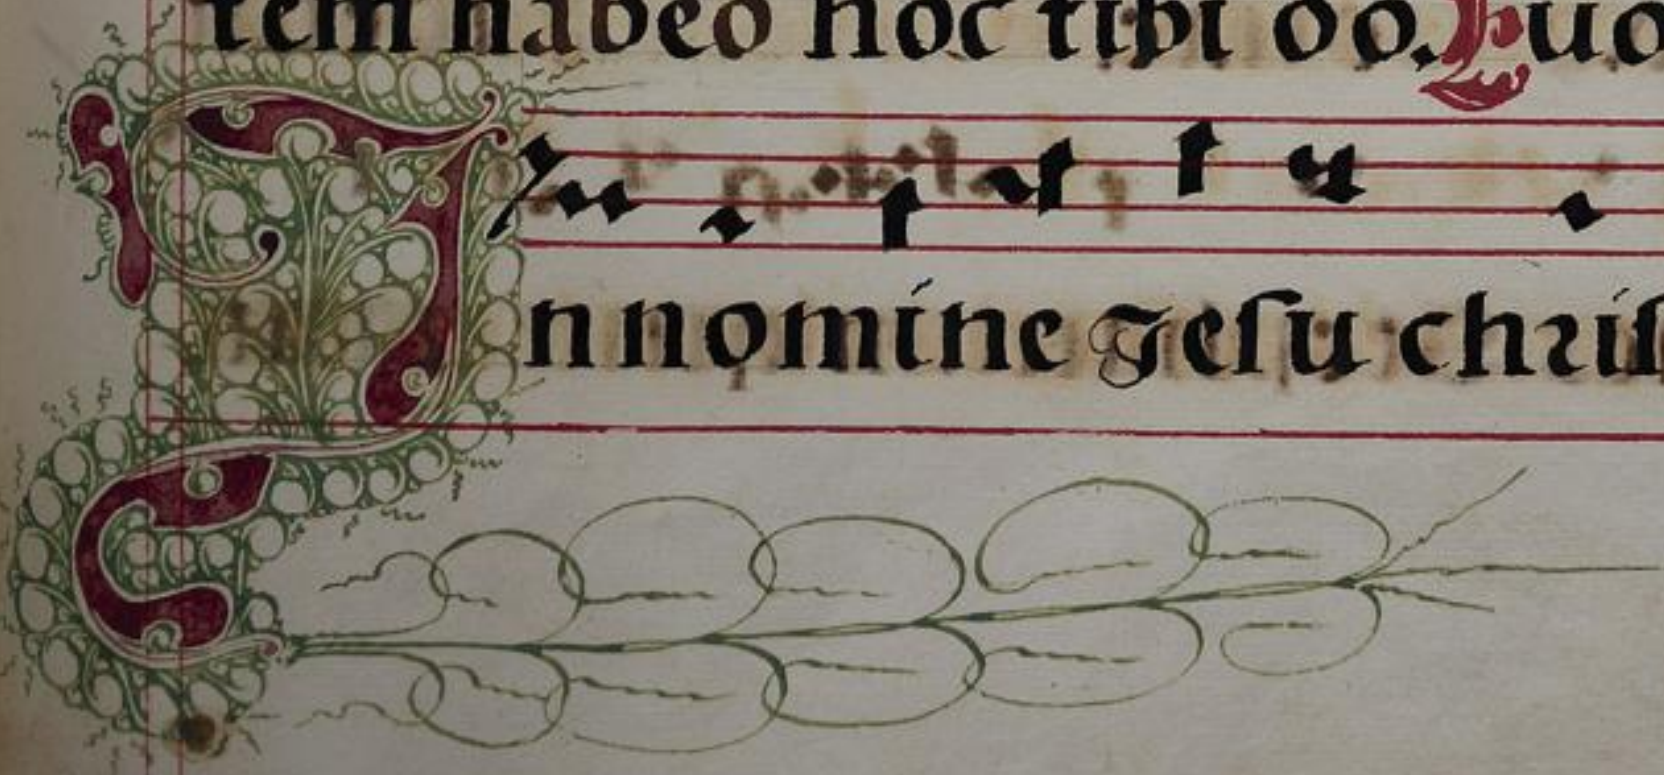 tem habeo hoc tibi do. Euo
In nomine Jesu chris